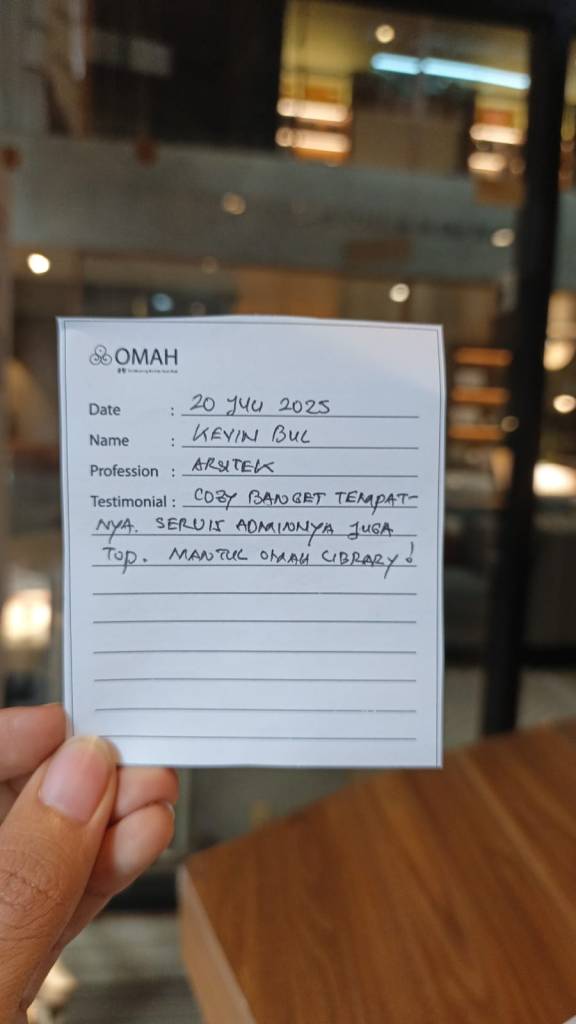 OMAH
Date : 20 JULI 2025
Name : KEVIN BUL
Profession : ARSITEK
Testimonial : COZY BANGET TEMPAT-
NYA. SERVIS ADMINNYA JUGA
TOP. MANTUL OMAH LIBRARY!